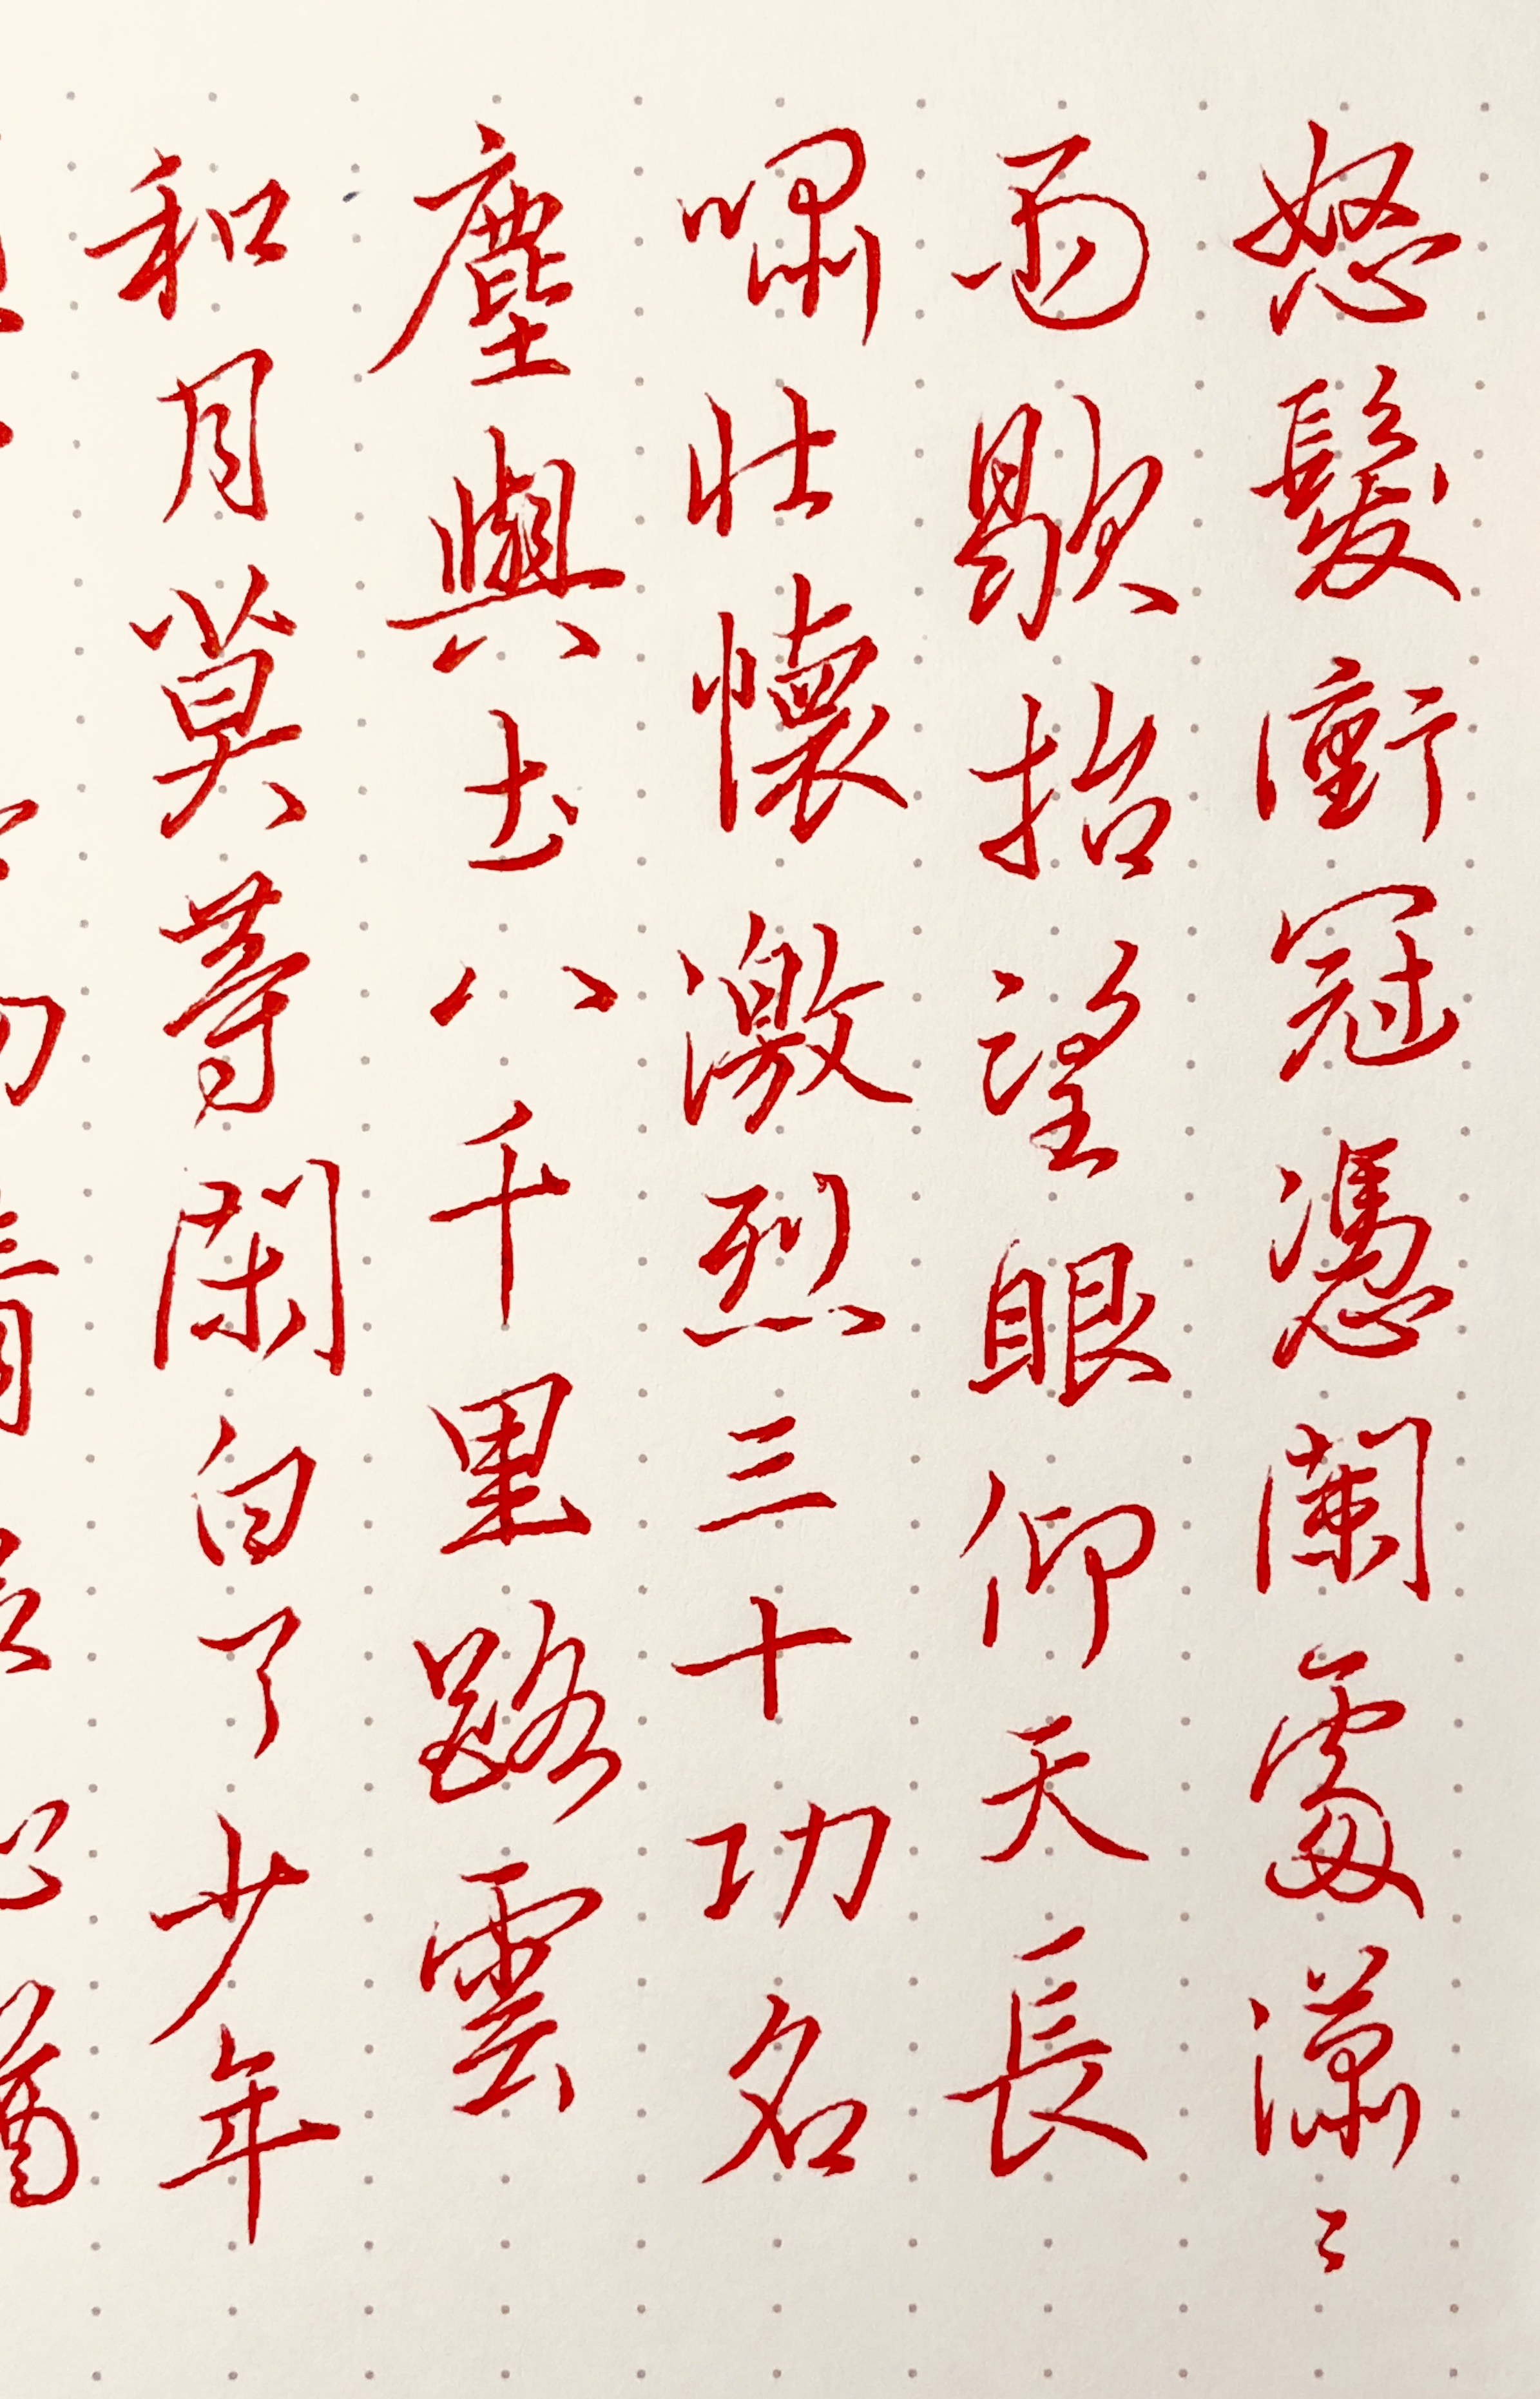 怒髮衝冠憑闌處瀟〻
雨歇抬望眼仰天長
嘯壯懷激烈三十功名
塵與土八千里路雲
和月莫等閑白了少年